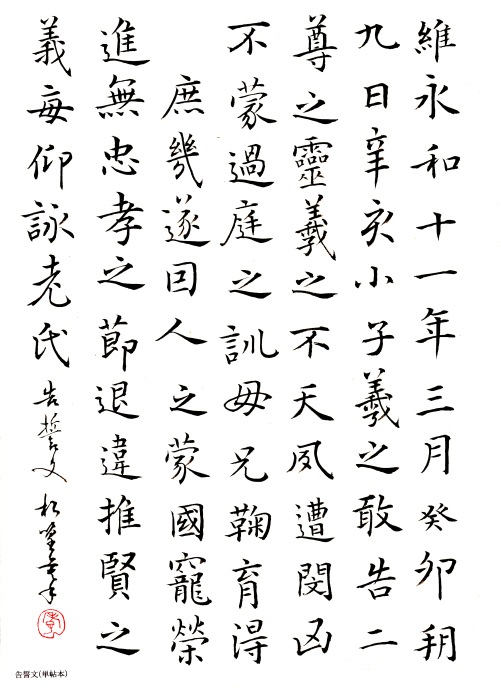 維永和十一年三月癸卯朔
九日辛亥小子羲之敢告二
尊之靈羲之不天夙遭閔凶
不蒙過庭之訓母兄鞠育得
庶幾遂因人之蒙國寵榮
進無忠孝之節退違推賢之
義每仰詠老氏 告誓文
告誓文(単帖本)